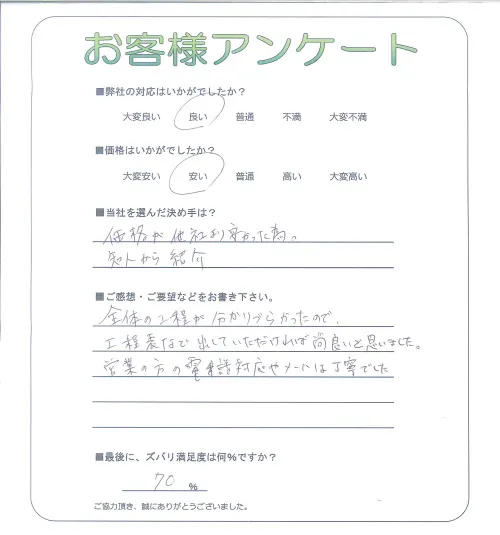 お客様アンケート
■弊社の対応はいかがでしたか？
大変良い 良い 普通 不満 大変不満
■価格はいかがでしたか？
大変安い 安い 普通 高い 大変高い
■当社を選んだ決め手は？
価格が他社より安かった為。
知人から紹介
■ご感想・ご要望などをお書き下さい。
全体の工程が分かりづらかったので、
工程表など出していただければ尚良いと思いました。
営業の方の電話対応やメールは丁寧でした
■最後に、ズバリ満足度は何％ですか？
70 ％
ご協力頂き、誠にありがとうございました。